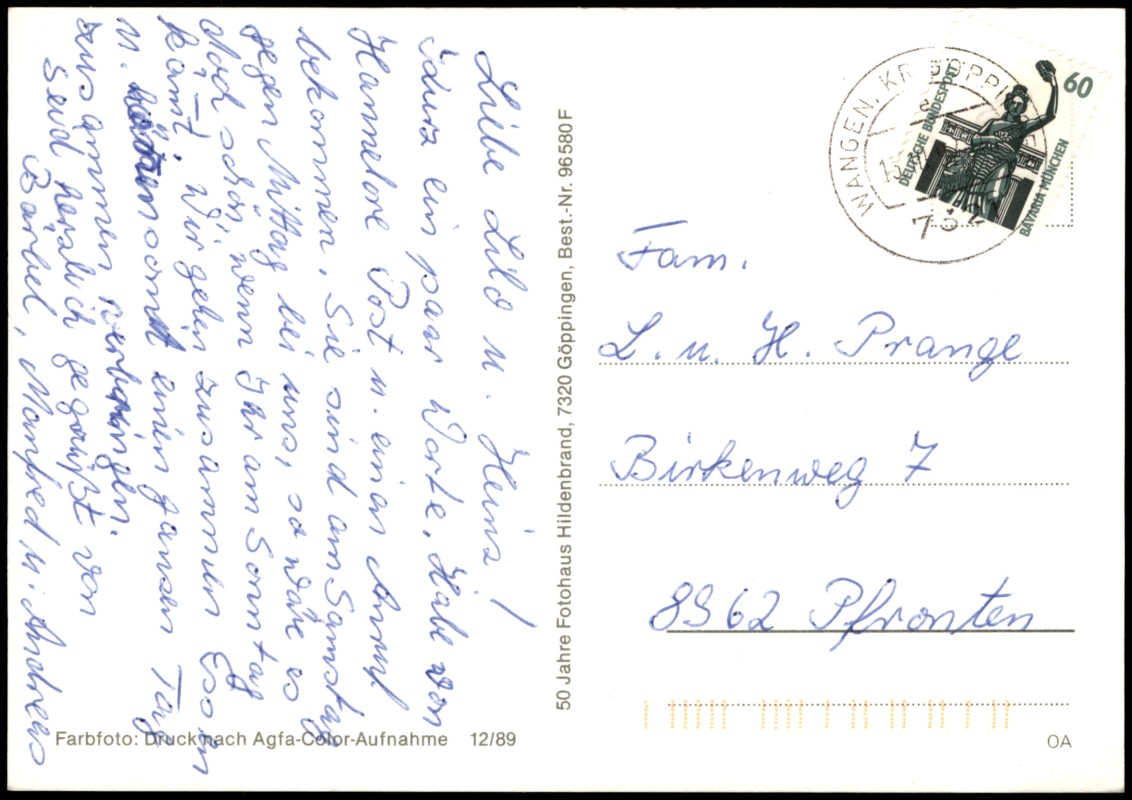 Liebe Lilo u. Heinz!
ein paar Worte. Habe von
Hannelore Post u. einen Anruf
bekommen. Sie sind am Samstag
gegen Mittag bei uns, so wäre es
doch schön, wenn Ihr am Sonntag
kämt. Wir gehen zusammen Essen
u. somit einen ganzen Tag
zusammen verbringen.
Seid herzlich gegrüßt von
Bärbel, Manfred u. Andreas
Farbfoto: Druck nach Agfa-Color-Aufnahme 12/89
50 Jahre Fotohaus Hildenbrand, 7320 Göppingen, Best.-Nr. 96580 F
WANGEN, KR GÖPPINGEN
DEUTSCHE BUNDESPOST
60
BAVARIA MÜNCHEN
Fam.
L. u. H. Prange
Birkenweg 7
8962 Pfronten
OA